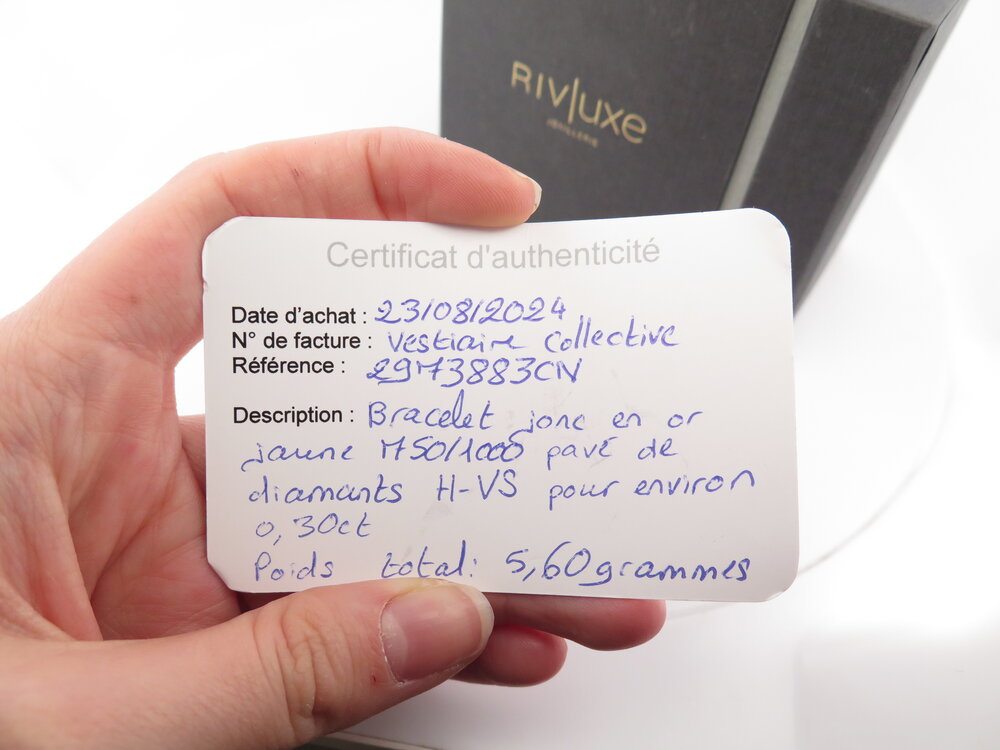 RIVluxe
JOAILLERIE
Certificat d'authenticité
Date d'achat : 23/08/2024
N° de facture : Vestiaire Collective
Référence : 2973883CN
Description : Bracelet jonc en or
jaune 750/1000 pavé de
diamants H-VS pour environ
0,30ct
Poids total: 5,60grammes